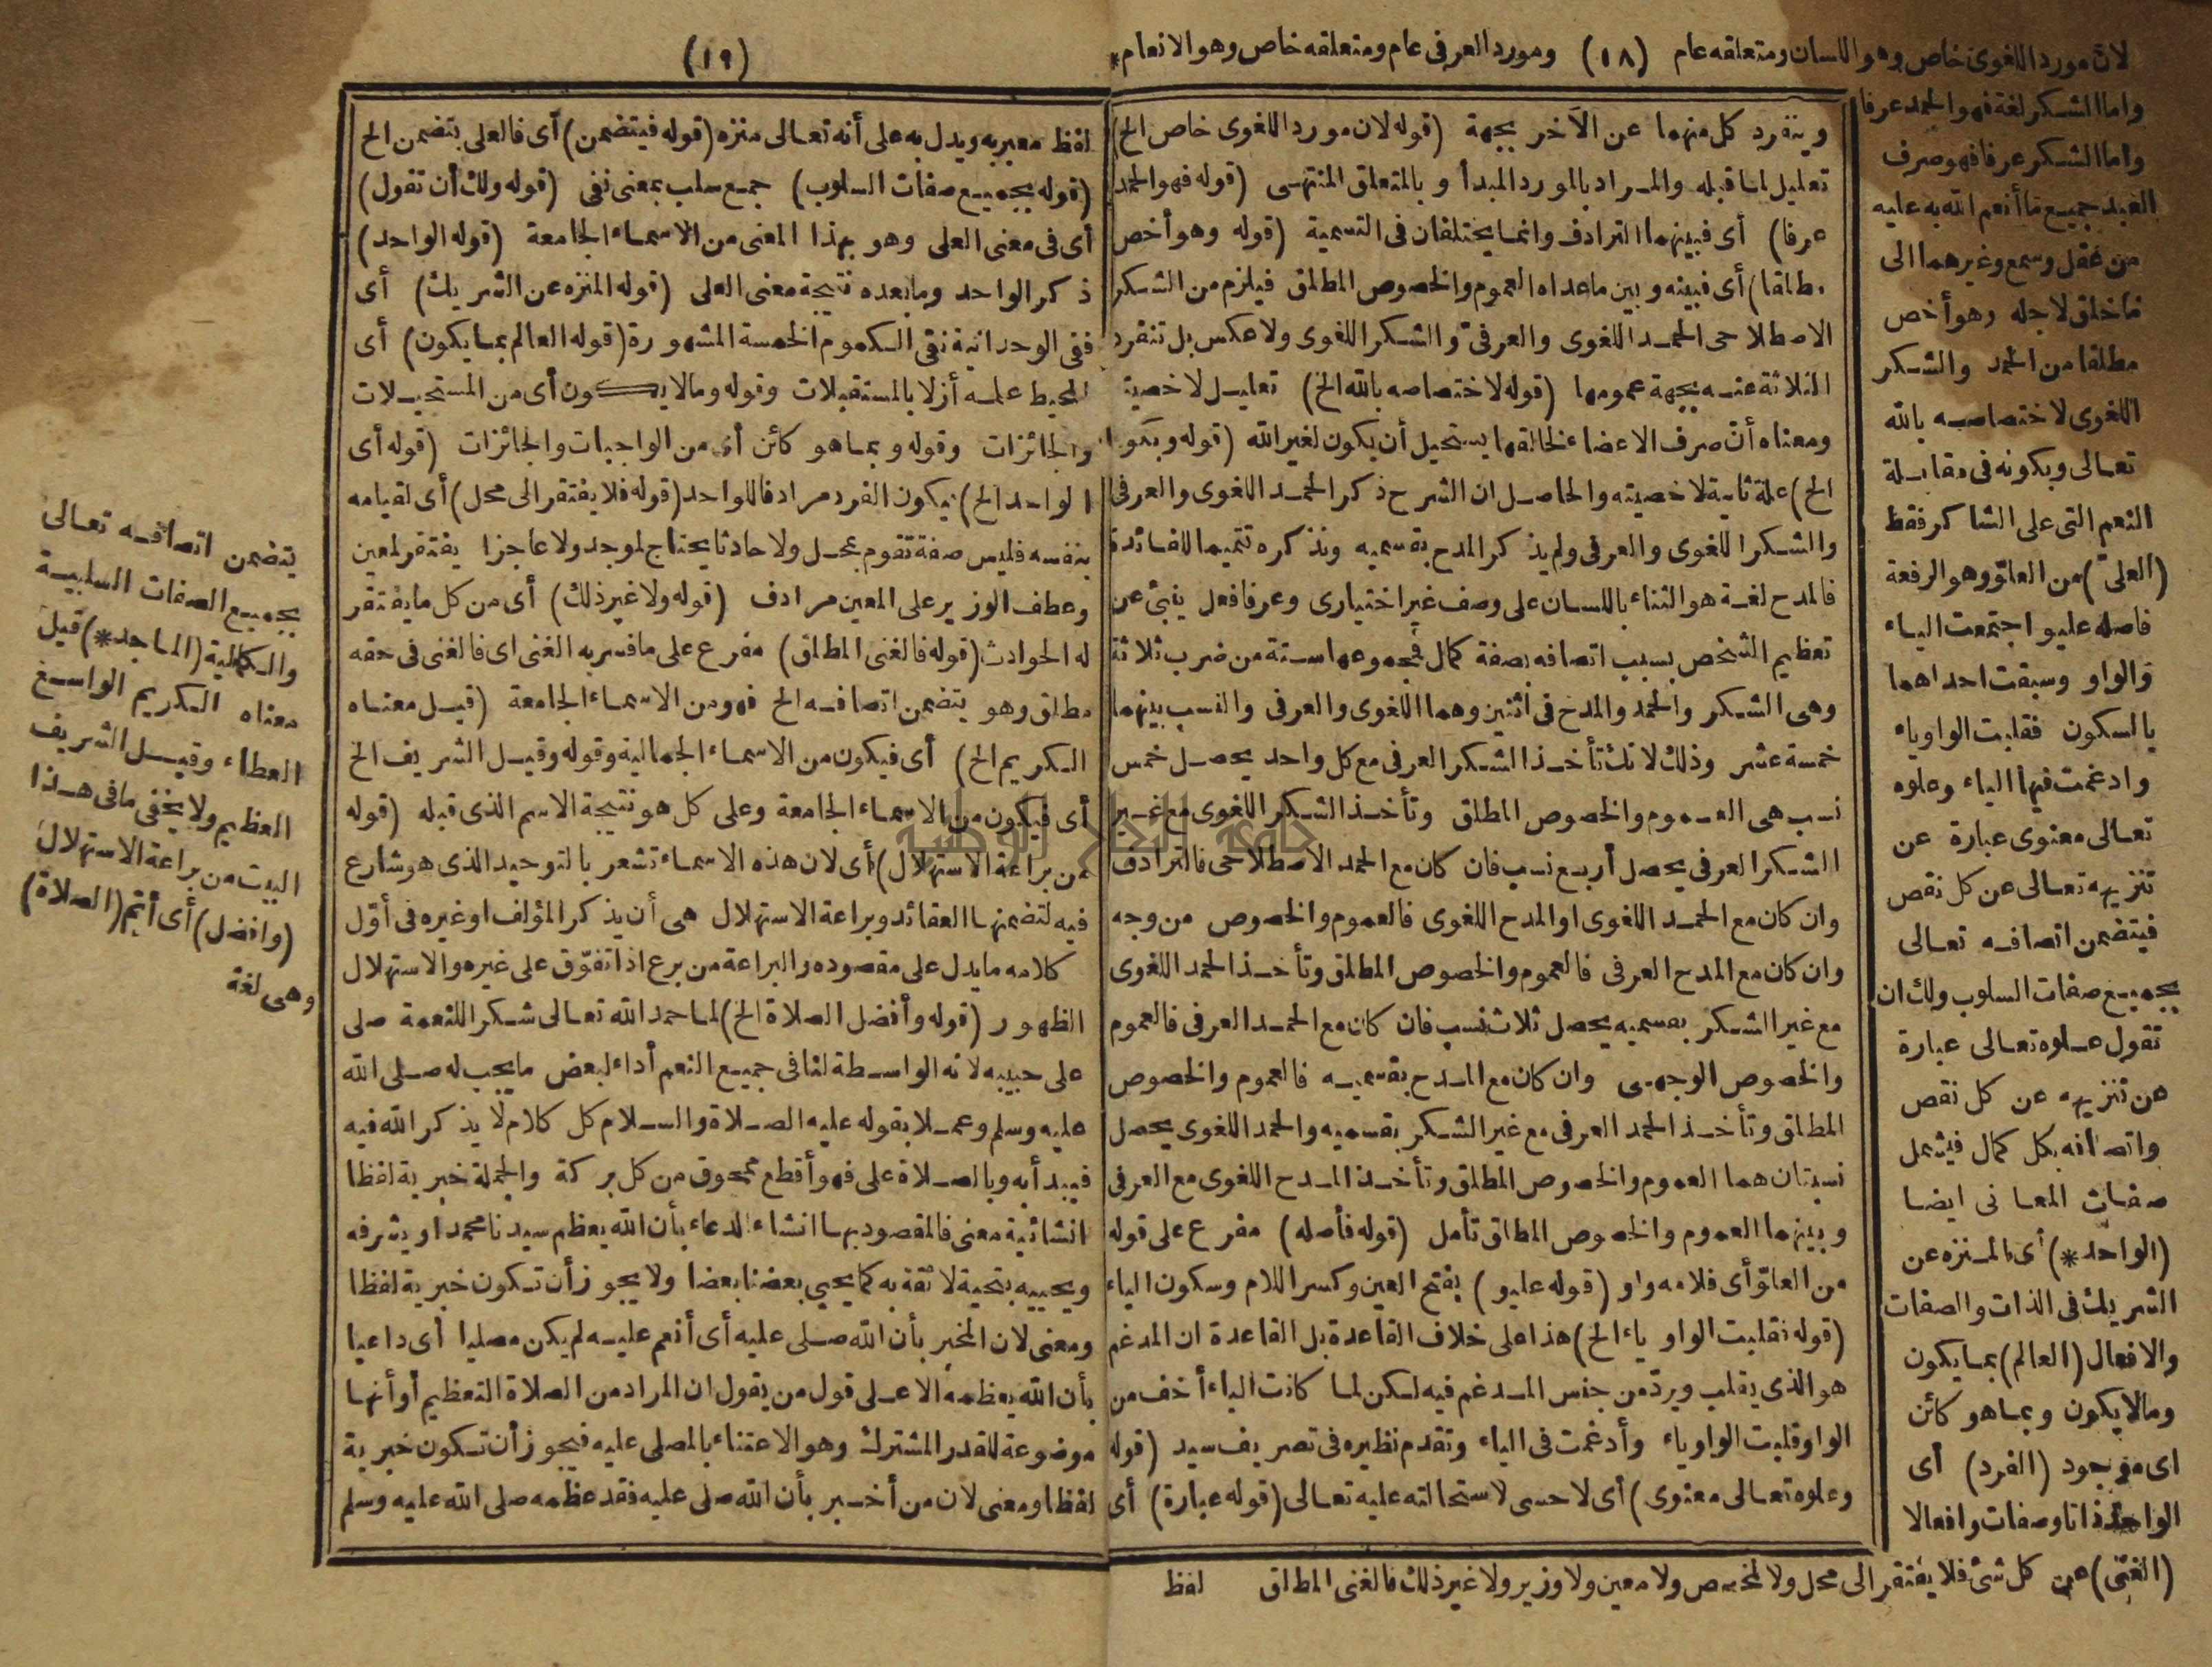 لان مورد اللغوى خاص وهو اللسان ومتعلقه عام (١٨) ومورد العرفى عام ومتعلقه خاص وهو الانعام*
واما الشكر لغة فهو الحمد عرفا
واما الشكر عرفا فهو صرف
العبد جميع ما أنعم الله به عليه
من عقل وسمع وغيرهما الى
ما خلق لاجله وهو أخص
مطلقا من الحمد والشكر
اللغوى لاختصاصه بالله
تعالى وبكونه فى مقابلة
النعم التى على الشاكر فقط
(العلىّ) من العلوّ وهو الرفعة
فاصله عليو اجتمعت الياء
والواو وسبقت احداهما
بالسكون فقلبت الواو ياء
وادغمت فيها الياء وعلوه
تعالى معنوى عبارة عن
تنزيهه تعالى عن كل نقص
فيتضمن اتصافه تعالى
بجميع صفات السلوب ولك ان
تقول علوه تعالى عبارة
عن تنزيهه عن كل نقص
واتصافه بكل كمال فيشمل
صفات المعانى ايضا
(الواحد*) أى المنزه عن
الشريك فى الذات والصفات
والافعال (العالم) بما يكون
ومالا يكون وبما هو كائن
اى موجود (الفرد) أى
الواحد ذاتا وصفات وافعالا
(الغنى) عن كل شئ فلا يفتقر الى محل ولا لمخصص ولا معين ولا وزير ولا غير ذلك فالغنى المطلق
وينفرد كل منهما عن الآخر بجهة (قوله لان مورد اللغوى خاص الخ)
تعليل لما قبله والمراد بالمورد المبدأ وبالمتعلق المنتهى (قوله فهو الحمد
عرفا) أى فبينهما الترادف وانما يختلفان فى التسمية (قوله وهو أخص
مطلقا) أى فبينه وبين ماعداه العموم والخصوص المطلق فيلزم من الشكر
الاصطلاحى الحمد اللغوى والعرفىّ والشكر اللغوى ولا عكس بل تنفرد
الثلاثة عنه بجهة عمومها (قوله لاختصاصه بالله الخ) تعليل لاخصيته
ومعناه أنّ صرف الاعضاء لخالقها يستحيل أن يكون لغير الله (قوله وبكونه
الخ) علة ثانية لاخصيته والحاصل ان الشرح ذكر الحمد اللغوى والعرفى
والشكر اللغوى والعرفى ولم يذكر المدح بقسميه ونذكره تتميما للفائدة
فالمدح لغة هو الثناء باللسان على وصف غير اختيارى وعرفا فعل ينبئ عن
تعظيم الشخص بسبب اتصافه بصفة كمال فمجموعها ستة من ضرب ثلاثة
وهى الشكر والحمد والمدح فى اثنين وهما اللغوى والعرفى والنسب بينهما
خمسة عشر وذلك لانك تأخذ الشكر العرفى مع كل واحد يحصل خمس
نسب هى العموم والخصوص المطلق وتأخذ الشكر اللغوى مع غير
الشكر العرفى يحصل أربع نسب فان كان مع الحمد الاصطلاحى فالترادف
وان كان مع الحمد اللغوى او المدح اللغوى فالعموم والخصوص من وجه
وان كان مع المدح العرفى فالعموم والخصوص المطلق وتأخذ الحمد اللغوى
مع غير الشكر بقسميه يحصل ثلاث نسب فان كان مع الحمد العرفى فالعموم
والخصوص الوجهى وان كان مع المدح بقسميه فالعموم والخصوص
المطلق وتأخذ الحمد العرفى مع غير الشكر بقسميه والحمد اللغوى يحصل
نسبتان هما العموم والخصوص المطلق وتأخذ المدح اللغوى مع العرفى
وبينهما العموم والخصوص المطلق تأمل (قوله فأصله) مفرع على قوله
من العلوّ أى فلامه واو (قوله عليو) بفتح العين وكسر اللام وسكون الياء
(قوله فقلبت الواو ياء الخ) هذا على خلاف القاعدة بل القاعدة ان المدغم
هو الذى يقلب ويردّ من جنس المدغم فيه لكن لما كانت الياء أخف من
الواو قلبت الواو ياء وأدغمت فى الياء وتقدم نظيره فى تصريف سيد (قوله
وعلوه تعالى معنوى) أى لا حسى لاستحالته عليه تعالى (قوله عبارة) أى
لفظ
(١٩)
لفظ معبر به ويدل به على أنه تعالى منزه (قوله فيتضمن) أى فالعلى يتضمن الخ
(قوله بجميع صفات السلوب) جمع سلب بمعنى نفى (قوله ولك أن تقول)
أى فى معنى العلى وهو بهذا المعنى من الاسماء الجامعة (قوله الواحد)
ذكر الواحد وما بعده نتيجة معنى العلى (قوله المنزه عن الشريك) أى
ففى الوحدانية نفى الكموم الخمسة المشهورة (قوله العالم بما يكون) أى
المحيط علمه أزلا بالمستقبلات وقوله ومالا يكون أى من المستحيلات
والجائزات وقوله وبما هو كائن أى من الواجبات والجائزات (قوله أى
الواحد الخ) فيكون الفرد مرادفا للواحد (قوله فلا يفتقر الى محل) أى لقيامه
بنفسه فليس صفة تقوم بمحل ولا حادثا يحتاج لموجد ولا عاجزا يفتقر لمعين
وعطف الوزير على المعين مرادف (قوله ولا غير ذلك) أى من كل ما يفتقر
له الحوادث (قوله فالغنى المطلق) مفرع على ما فسر به الغنى اى فالغنى فى حقه
مطلق وهو يتضمن اتصافه الخ فهو من الاسماء الجامعة (قيل معناه
الكريم الخ) أى فيكون من الاسماء الجمالية وقوله وقيل الشريف الخ
أى فيكون من الاسماء الجامعة وعلى كل هو نتيجة الاسم الذى قبله (قوله
من براعة الاستهلال) أى لان هذه الاسماء تشعر بالتوحيد الذى هو شارع
فيه لتضمنها العقائد وبراعة الاستهلال هى أن يذكر المؤلف او غيره فى أوّل
كلامه ما يدل على مقصوده والبراعة من برع اذا تفوّق على غيره والاستهلال
الظهور (قوله وأفضل الصلاة الخ) لما حمد الله تعالى شكرا للنعمة صلى
على حبيبه لانه الواسطة لنا فى جميع النعم أداء لبعض ما يجب له صلى الله
عليه وسلم وعملا بقوله عليه الصلاة والسلام كل كلام لا يذكر الله فيه
فيبدأ به وبالصلاة على فهو أقطع ممحوق من كل بركة والجملة خبرية لفظا
انشائية معنى فالمقصود بها انشاء الدعاء بأن الله يعظم سيدنا محمدا ويشرفه
ويحييه بتحية لائقة به كما يحيي بعضنا بعضا ولا يجوز أن تكون خبرية لفظا
ومعنى لان المخبر بأن الله صلى عليه أى أنعم عليه لم يكن مصليا أى داعيا
بأن الله يعظمه الا على قول من يقول ان المراد من الصلاة التعظيم أو أنها
موضوعة للقدر المشترك وهو الاعتناء بالمصلى عليه فيجوز أن تكون خبرية
لفظا ومعنى لان من أخبر بأن الله صلى عليه فقد عظمه صلى الله عليه وسلم
يتضمن اتصافه تعالى
بجميع الصفات السلبية
والكمالية (الماجد*) قيل
معناه الكريم الواسع
العطاء وقيل الشريف
العظيم ولا يخفى ما فى هذا
البيت من براعة الاستهلال
(وافضل) أى أتم (الصلاة)
وهى لغة